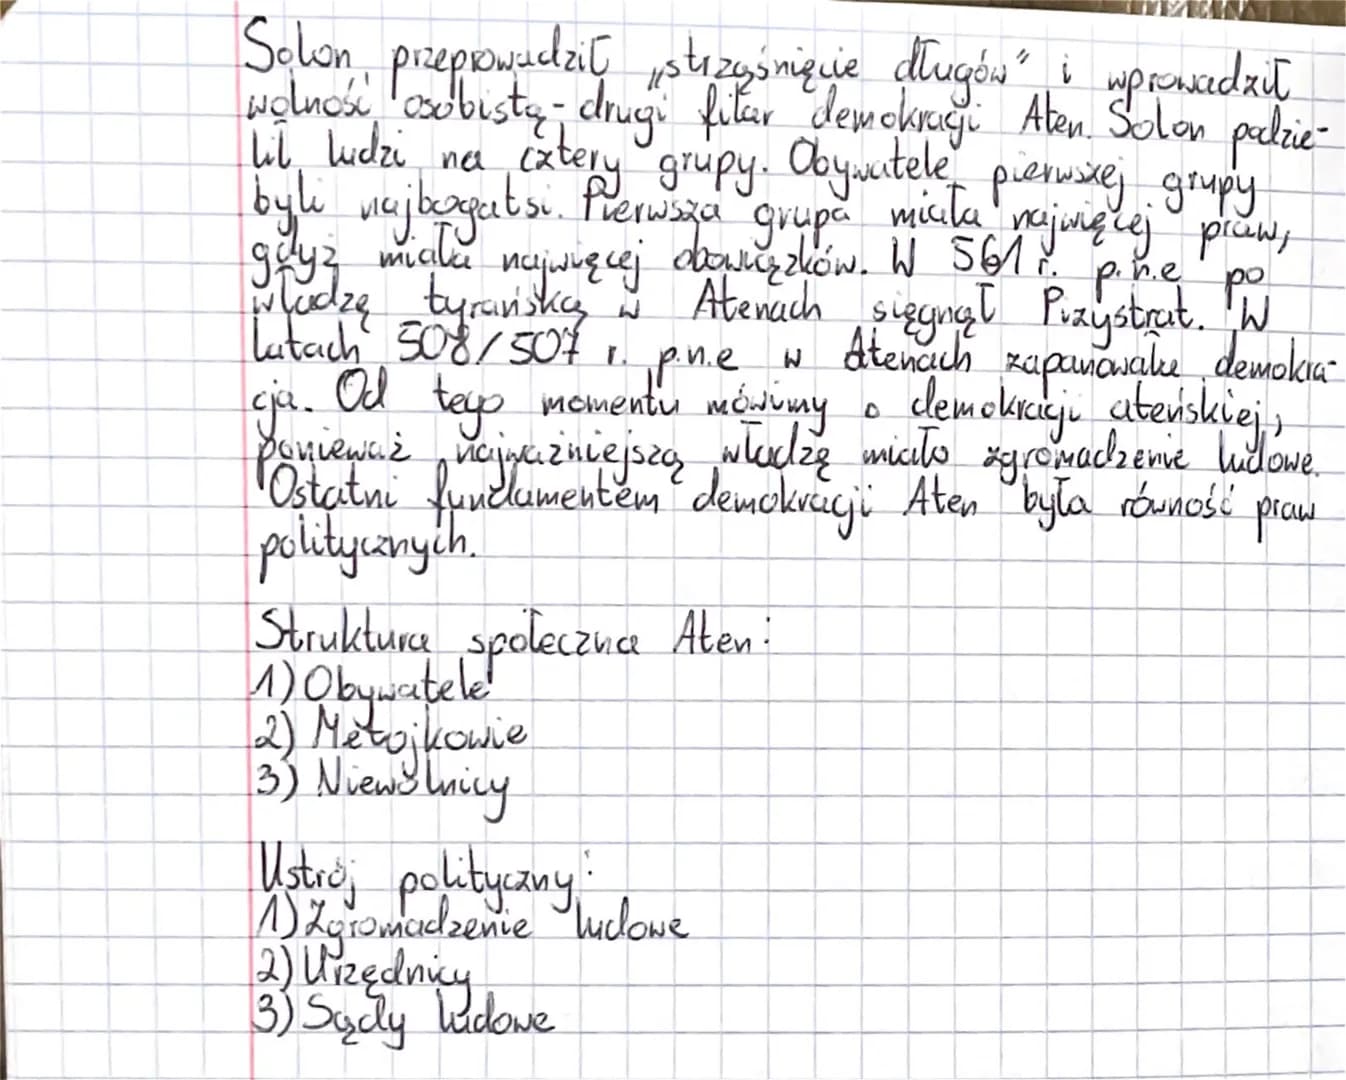 Solon przeprowadził „strząśnięcie długów" i wprowadził
wolność osobistą - drugi filar demokracji Aten. Solon podzie-
lił ludzi na cztery grupy. Obywatele pierwszej grupy
byli najbogatsi. Pierwsza grupa miała najwięcej praw,
gdyż miała najwięcej obowiązków. W 561 r. p.n.e po
władzę tyrańską w Atenach sięgnął Pizystrat. W
latach 508/507 r. p.n.e w Atenach zapanowała demokra-
cja. Od tego momentu mówimy o demokracji ateńskiej,
ponieważ najważniejszą władzę miało zgromadzenie ludowe.
Ostatni fundamentem demokracji Aten była równość praw
politycznych.
Struktura społeczna Aten:
1) Obywatele
2) Metojkowie
3) Niewolnicy
Ustrój polityczny:
1) Zgromadzenie ludowe
2) Urzędnicy
3) Sądy ludowe